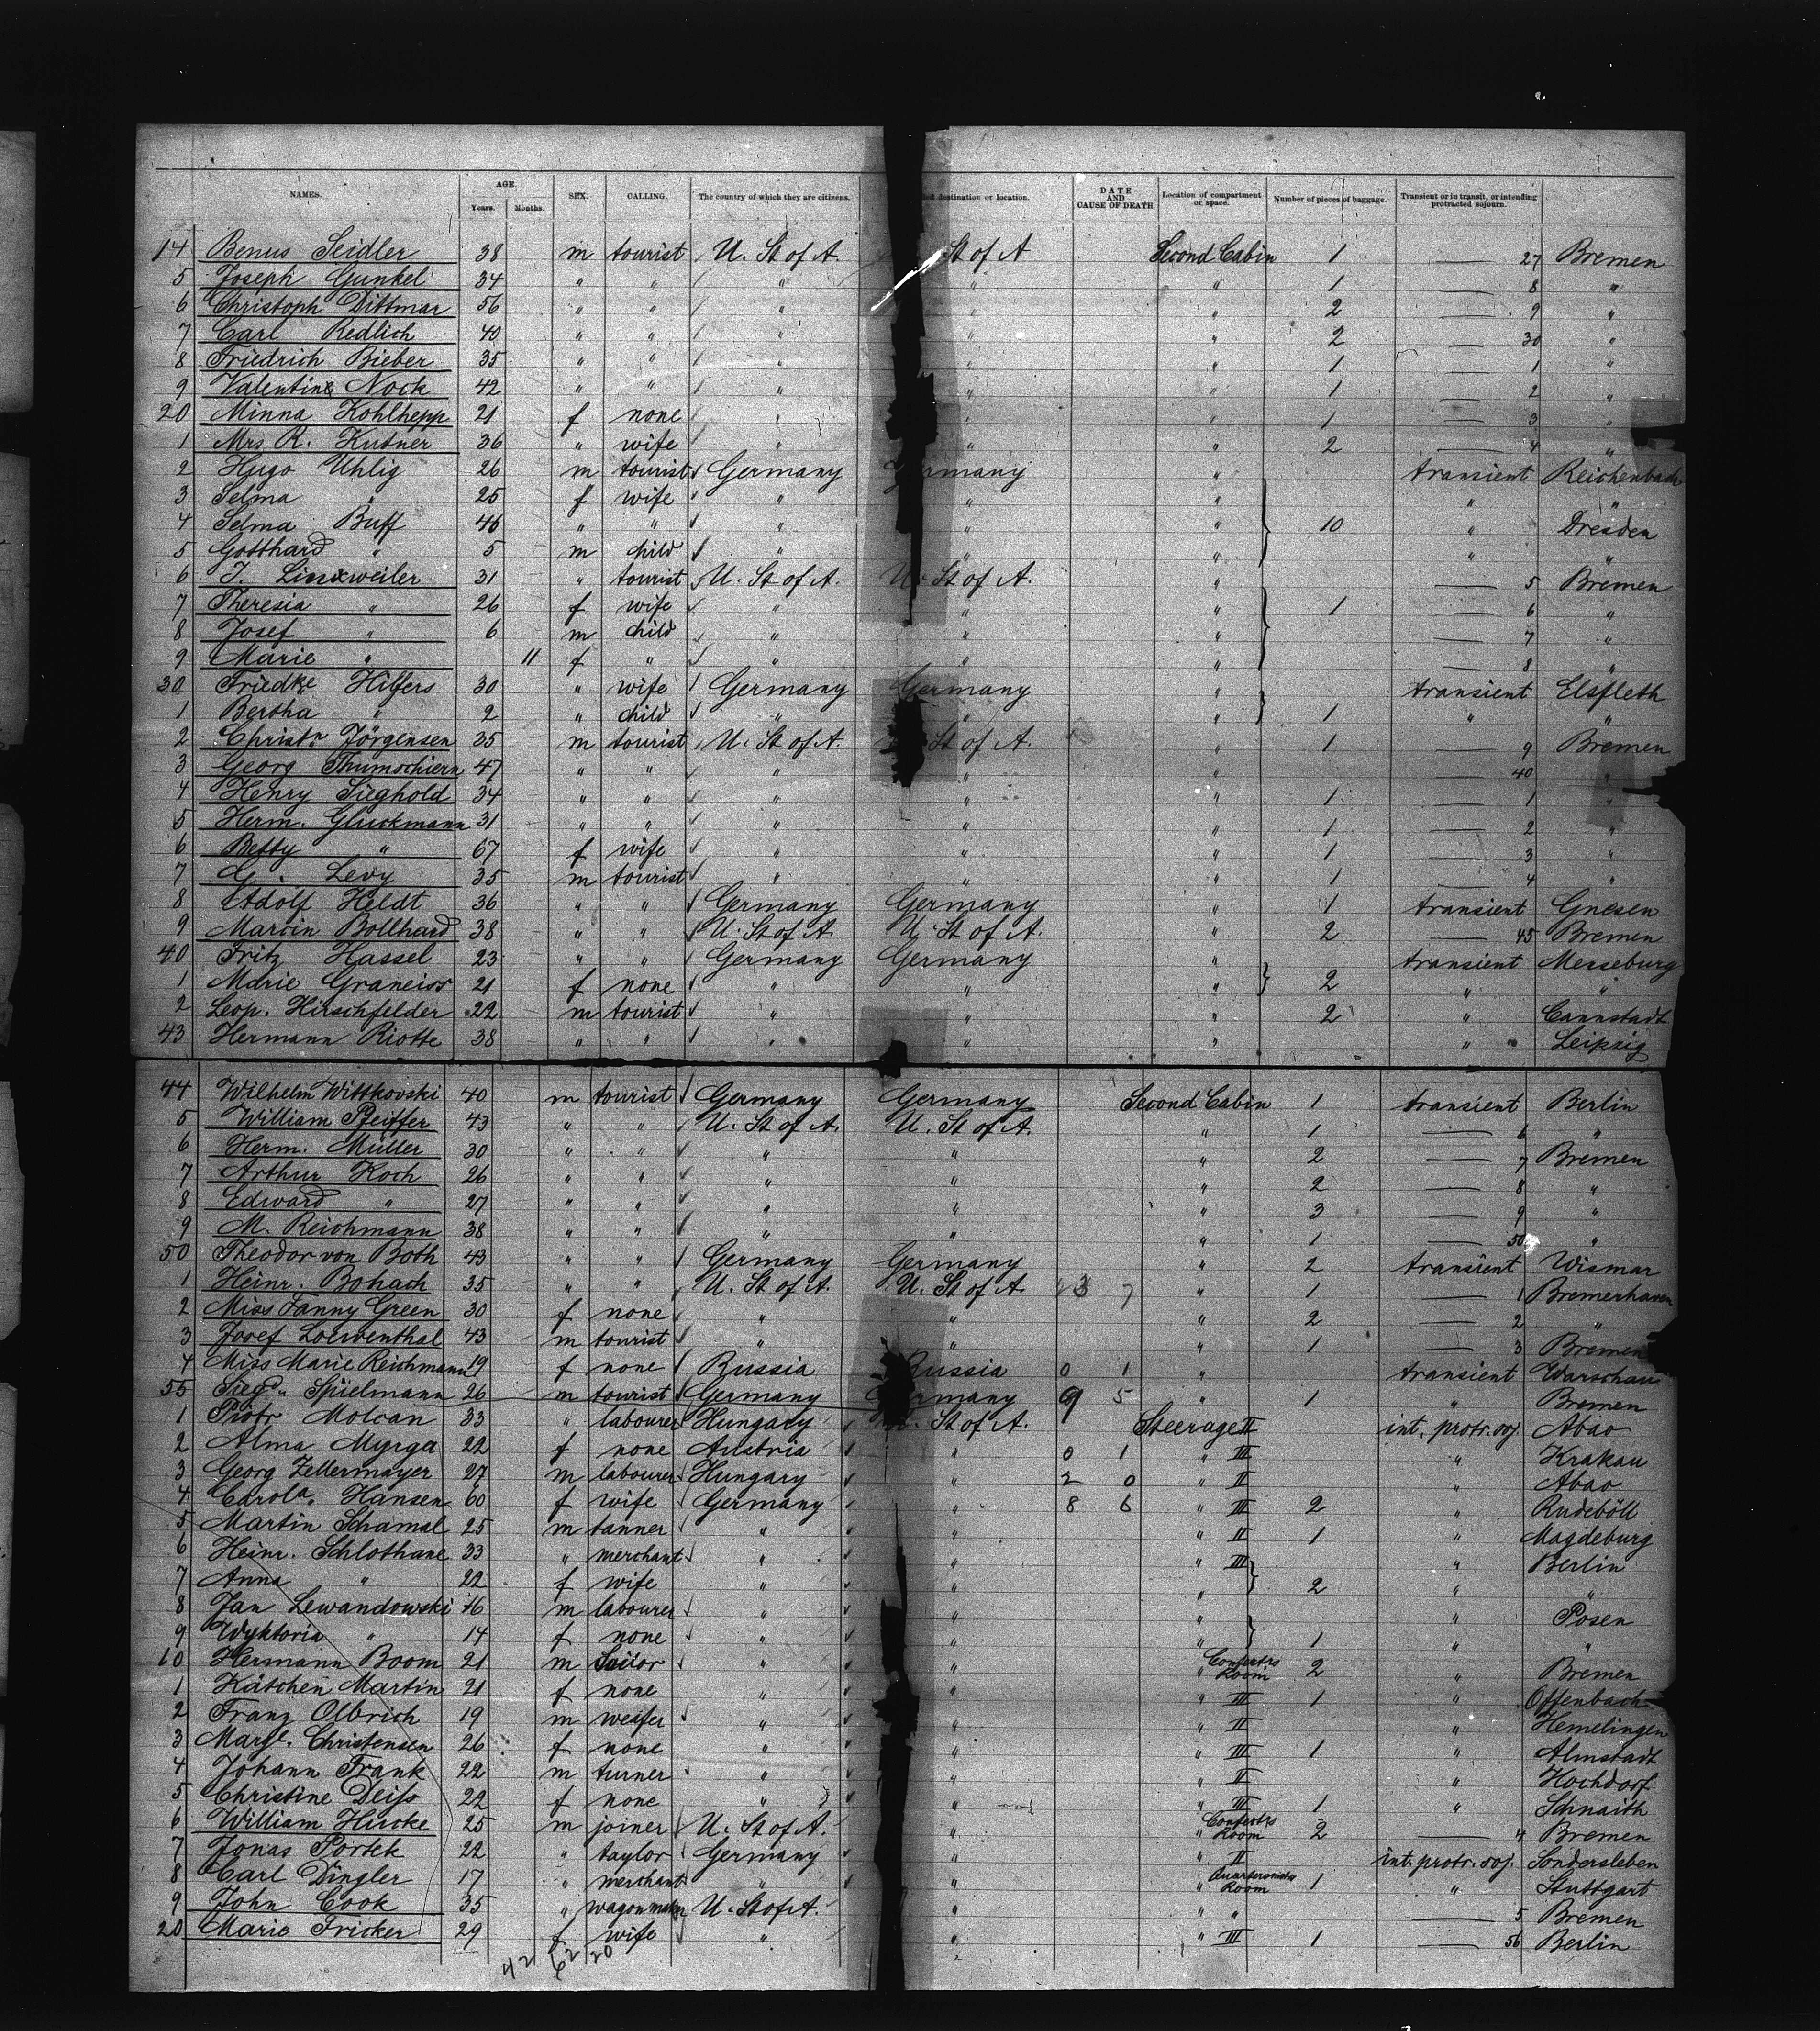 NAMES. AGE. Years. Months. SEX. CALLING. The country of which they are citizens. destination or location. DATE AND CAUSE OF DEATH Location of compartment or space. Number of pieces of baggage. Transient or in transit, or intending protracted sojourn.
14 Benus Seidler 38 m tourist U. St of A. St of A Second Cabin 1 — 27 Bremen
5 Joseph Gunkel 34 " " " " " 1 — 8 "
6 Christoph Dittmar 56 " " " " " 2 — 9 "
7 Carl Redlich 40 " " " " " 2 — 30 "
8 Friedrich Bieber 35 " " " " " 1 — 1 "
9 Valentine Nock 42 " " " " " 1 — 2 "
20 Minna Kohlhepp 21 f none " " " 1 — 3 "
1 Mrs R. Kutner 36 " wife " " " 2 — 4 "
2 Hugo Uhlig 26 m tourist Germany Germany " transient Reichenbach
3 Selma " 25 f wife " " " " "
4 Selma Buff 46 " " " " " 10 " Dresden
5 Gotthard " 5 m child " " " " "
6 J. Linxweiler 31 " tourist U. St of A. U. St of A. " — 5 Bremen
7 Theresia " 26 f wife " " " 1 — 6 "
8 Josef " 6 m child " " " — 7 "
9 Marie " 11 f " " " " — 8 "
30 Friedke Hilfers 30 " wife Germany Germany " transient Elsfleth
1 Bertha " 2 " child " " " 1 " "
2 Christn Jörgensen 35 m tourist U. St of A. St of A. " 1 — 9 Bremen
3 Georg Thumschirn 47 " " " " " — 40 "
4 Henry Sieghold 34 " " " " " 1 — 1 "
5 Herm. Gluckmann 31 " " " " " 1 — 2 "
6 Betty " 67 f wife " " " 1 — 3 "
7 G. Levy 35 m tourist " " " 1 — 4 "
8 Adolf Heldt 36 " " Germany Germany " 1 transient Gnesen
9 Martin Bollhard 38 " " U. St of A. U. St of A. " 2 — 45 Bremen
40 Fritz Hassel 23 " " Germany Germany " transient Merseburg
1 Marie Graneiss 21 f none " " " 2 " "
2 Leop. Hirschfelder 22 m tourist " " " 2 " Cannstadt
43 Hermann Riotte 38 " " " " " " Leipzig
44 Wilhelm Wittkovski 40 m tourist Germany Germany Second Cabin 1 transient Berlin
5 William Pfeiffer 43 " " U. St of A. U. St of A. " 1 — 6 "
6 Herm. Müller 30 " " " " " 2 — 7 Bremen
7 Arthur Koch 26 " " " " " 2 — 8 "
8 Edward " 27 " " " " " 3 — 9 "
9 M. Reichmann 38 " " " " " 1 — 50 "
50 Theodor von Both 43 " " Germany Germany " 2 transient Wismar
1 Heinr. Bohach 35 " " U. St of A. U. St of A. 3 7 " 1 — 1 Bremerhaven
2 Miss Fanny Green 30 f none " " " 2 — 2 "
3 Josef Loewenthal 43 m tourist " " " 1 — 3 Bremen
4 Miss Marie Reichmann 19 f none Russia Russia 0 1 " transient Warschau
55 Siegd. Spielmann 26 m tourist Germany Germany 9 5 " 1 " Bremen
1 Piotr Molcan 33 " labourer Hungary St of A. Steerage II int. protr. soj. Abao
2 Alma Myrga 22 f none Austria " 0 1 " III " Krakau
3 Georg Zellermayer 27 m labourer Hungary " 2 0 " II " Abao
4 Carola. Hansen 60 f wife Germany " 8 6 " III 2 " Rudeböll
5 Martin Schamal 25 m tanner " " " II 1 " Magdeburg
6 Heinr. Schlothane 33 " merchant " " " III " Berlin
7 Anna " 22 f wife " " " 2 " "
8 Jan Lewandowski 46 m labourer " " " " Posen
9 Wyktoria " 14 f none " " " 1 " "
10 Hermann Boom 21 m Sailor " " " Room 2 " Bremen
1 Kätchen Martin 21 f none " " " III 1 " Offenbach
2 Franz Olbrich 19 m " " " II " Hemelingen
3 Margl. Christensen 26 f none " " " III 1 " Almstadt
4 Johann Frank 22 m turner " " " II " Hochdorf
5 Christine Deiss 22 f none " " " III 1 " Schnaith
6 William Hucke 25 m joiner U. St of A. " " Room 2 — 4 Bremen
7 Jonas Portek 22 " taylor Germany " " II int. protr. soj. Sondersleben
8 Carl Dingler 17 " merchant " " " Room 1 " Stuttgart
9 John Cook 35 " wagonmaker U. St of A. " " " — 5 Bremen
20 Marie Fricker 29 f wife " " " III 1 — 56 Berlin
42 62 20